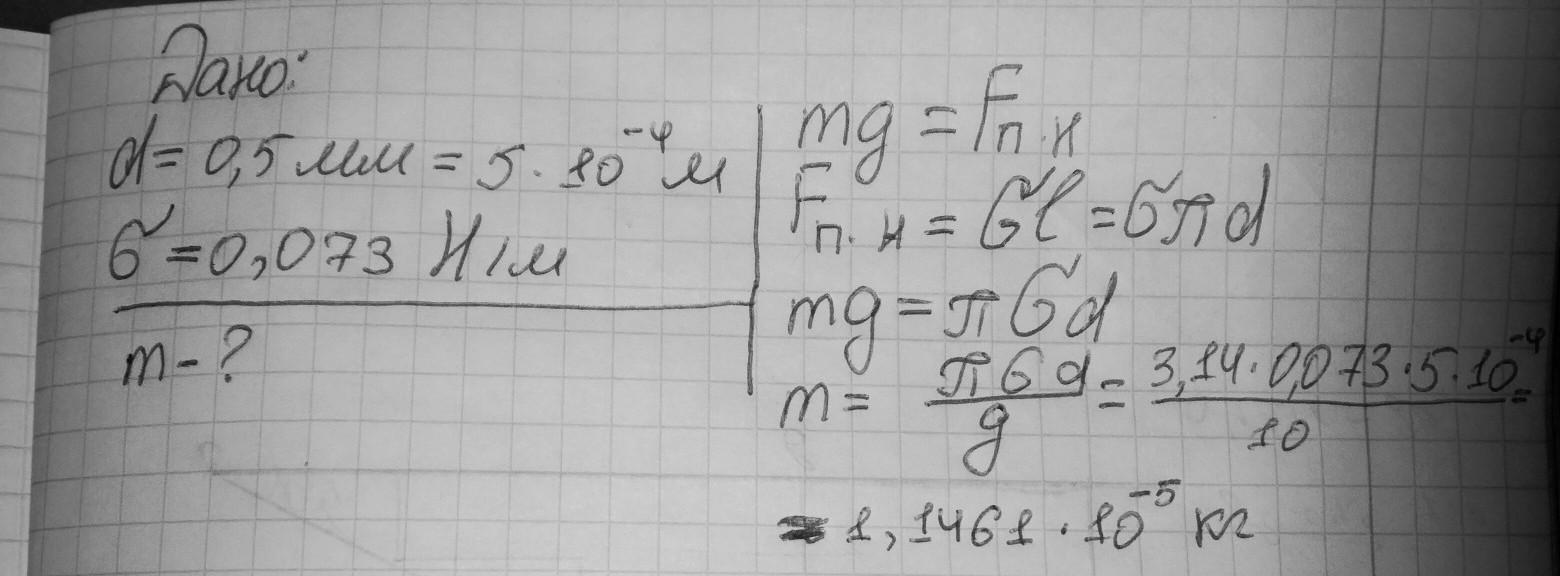 Дано:
d = 0,5 мм = 5 · 10⁻⁴ м
σ = 0,073 Н/м
m - ?
mg = Fп.н
Fп.н = σl = σπd
mg = πσd
m = πσd/g = 3,14 · 0,073 · 5 · 10⁻⁴/10 =
= 1,1461 · 10⁻⁵ кг